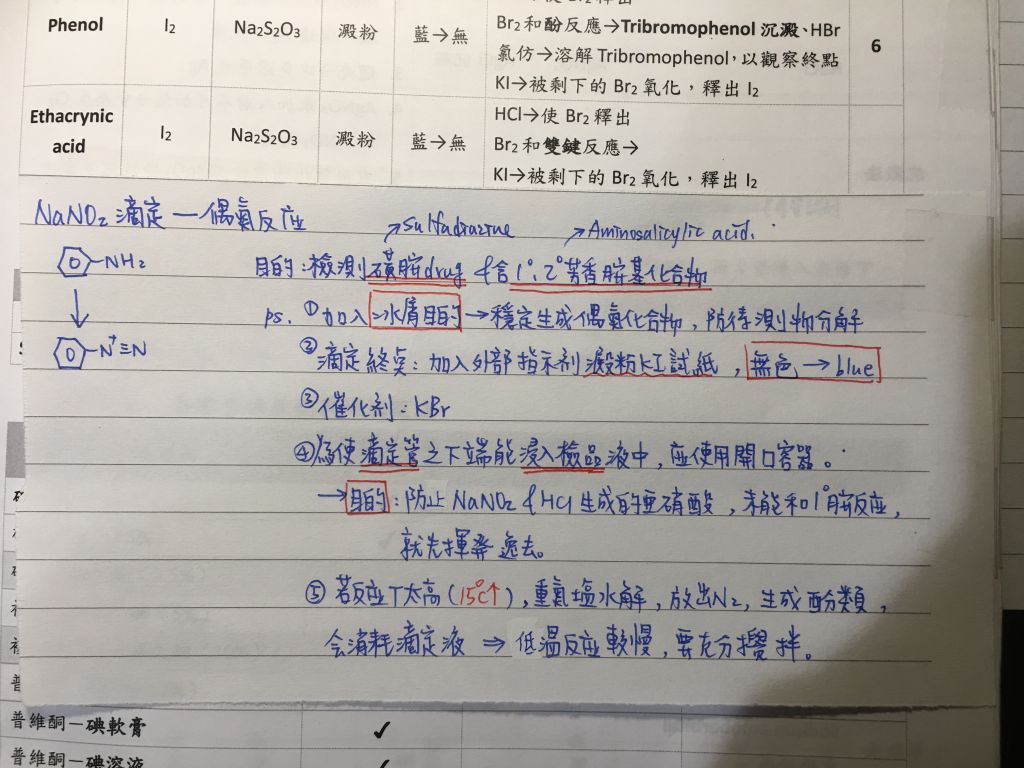 Phenol I₂ Na₂S₂O₃ 澱粉 藍→無
Br₂和酚反應→Tribromophenol 沉澱、HBr
氯仿→溶解 Tribromophenol,以觀察終點
KI→被剩下的 Br₂氧化,釋出 I₂
6
Ethacrynic acid I₂ Na₂S₂O₃ 澱粉 藍→無
HCl→使 Br₂ 釋出
Br₂和雙鍵反應→
KI→被剩下的 Br₂氧化,釋出 I₂
NaNO₂滴定—偶氮反应
↗sulfadiazine ↗Aminosalicylic acid.
-NH₂
目的:檢測磺胺drug &含1°、2°芳香胺基化合物
ps. ①加入冰屑目的→穩定生成偶氮化合物,防待測物分解
-N⁺≡N
②滴定終奌:加入外部指示剂澱粉KI試紙,無色→blue
③催化剂:KBr
④為使滴定管之下端能浸入檢品液中,应使用開口容器。
→目的:防止NaNO₂&HCl生成的亜硝酸,未能和1°胺反应,
就先揮發逸去。
⑤若反应T太高(15℃↑),重氮塩水解,放出N₂,生成酚類,
会消耗滴定液⇒低温反应較慢,要充分攪拌。
普維酮－碘軟膏 ✓
普維酮－碘溶液 ✓